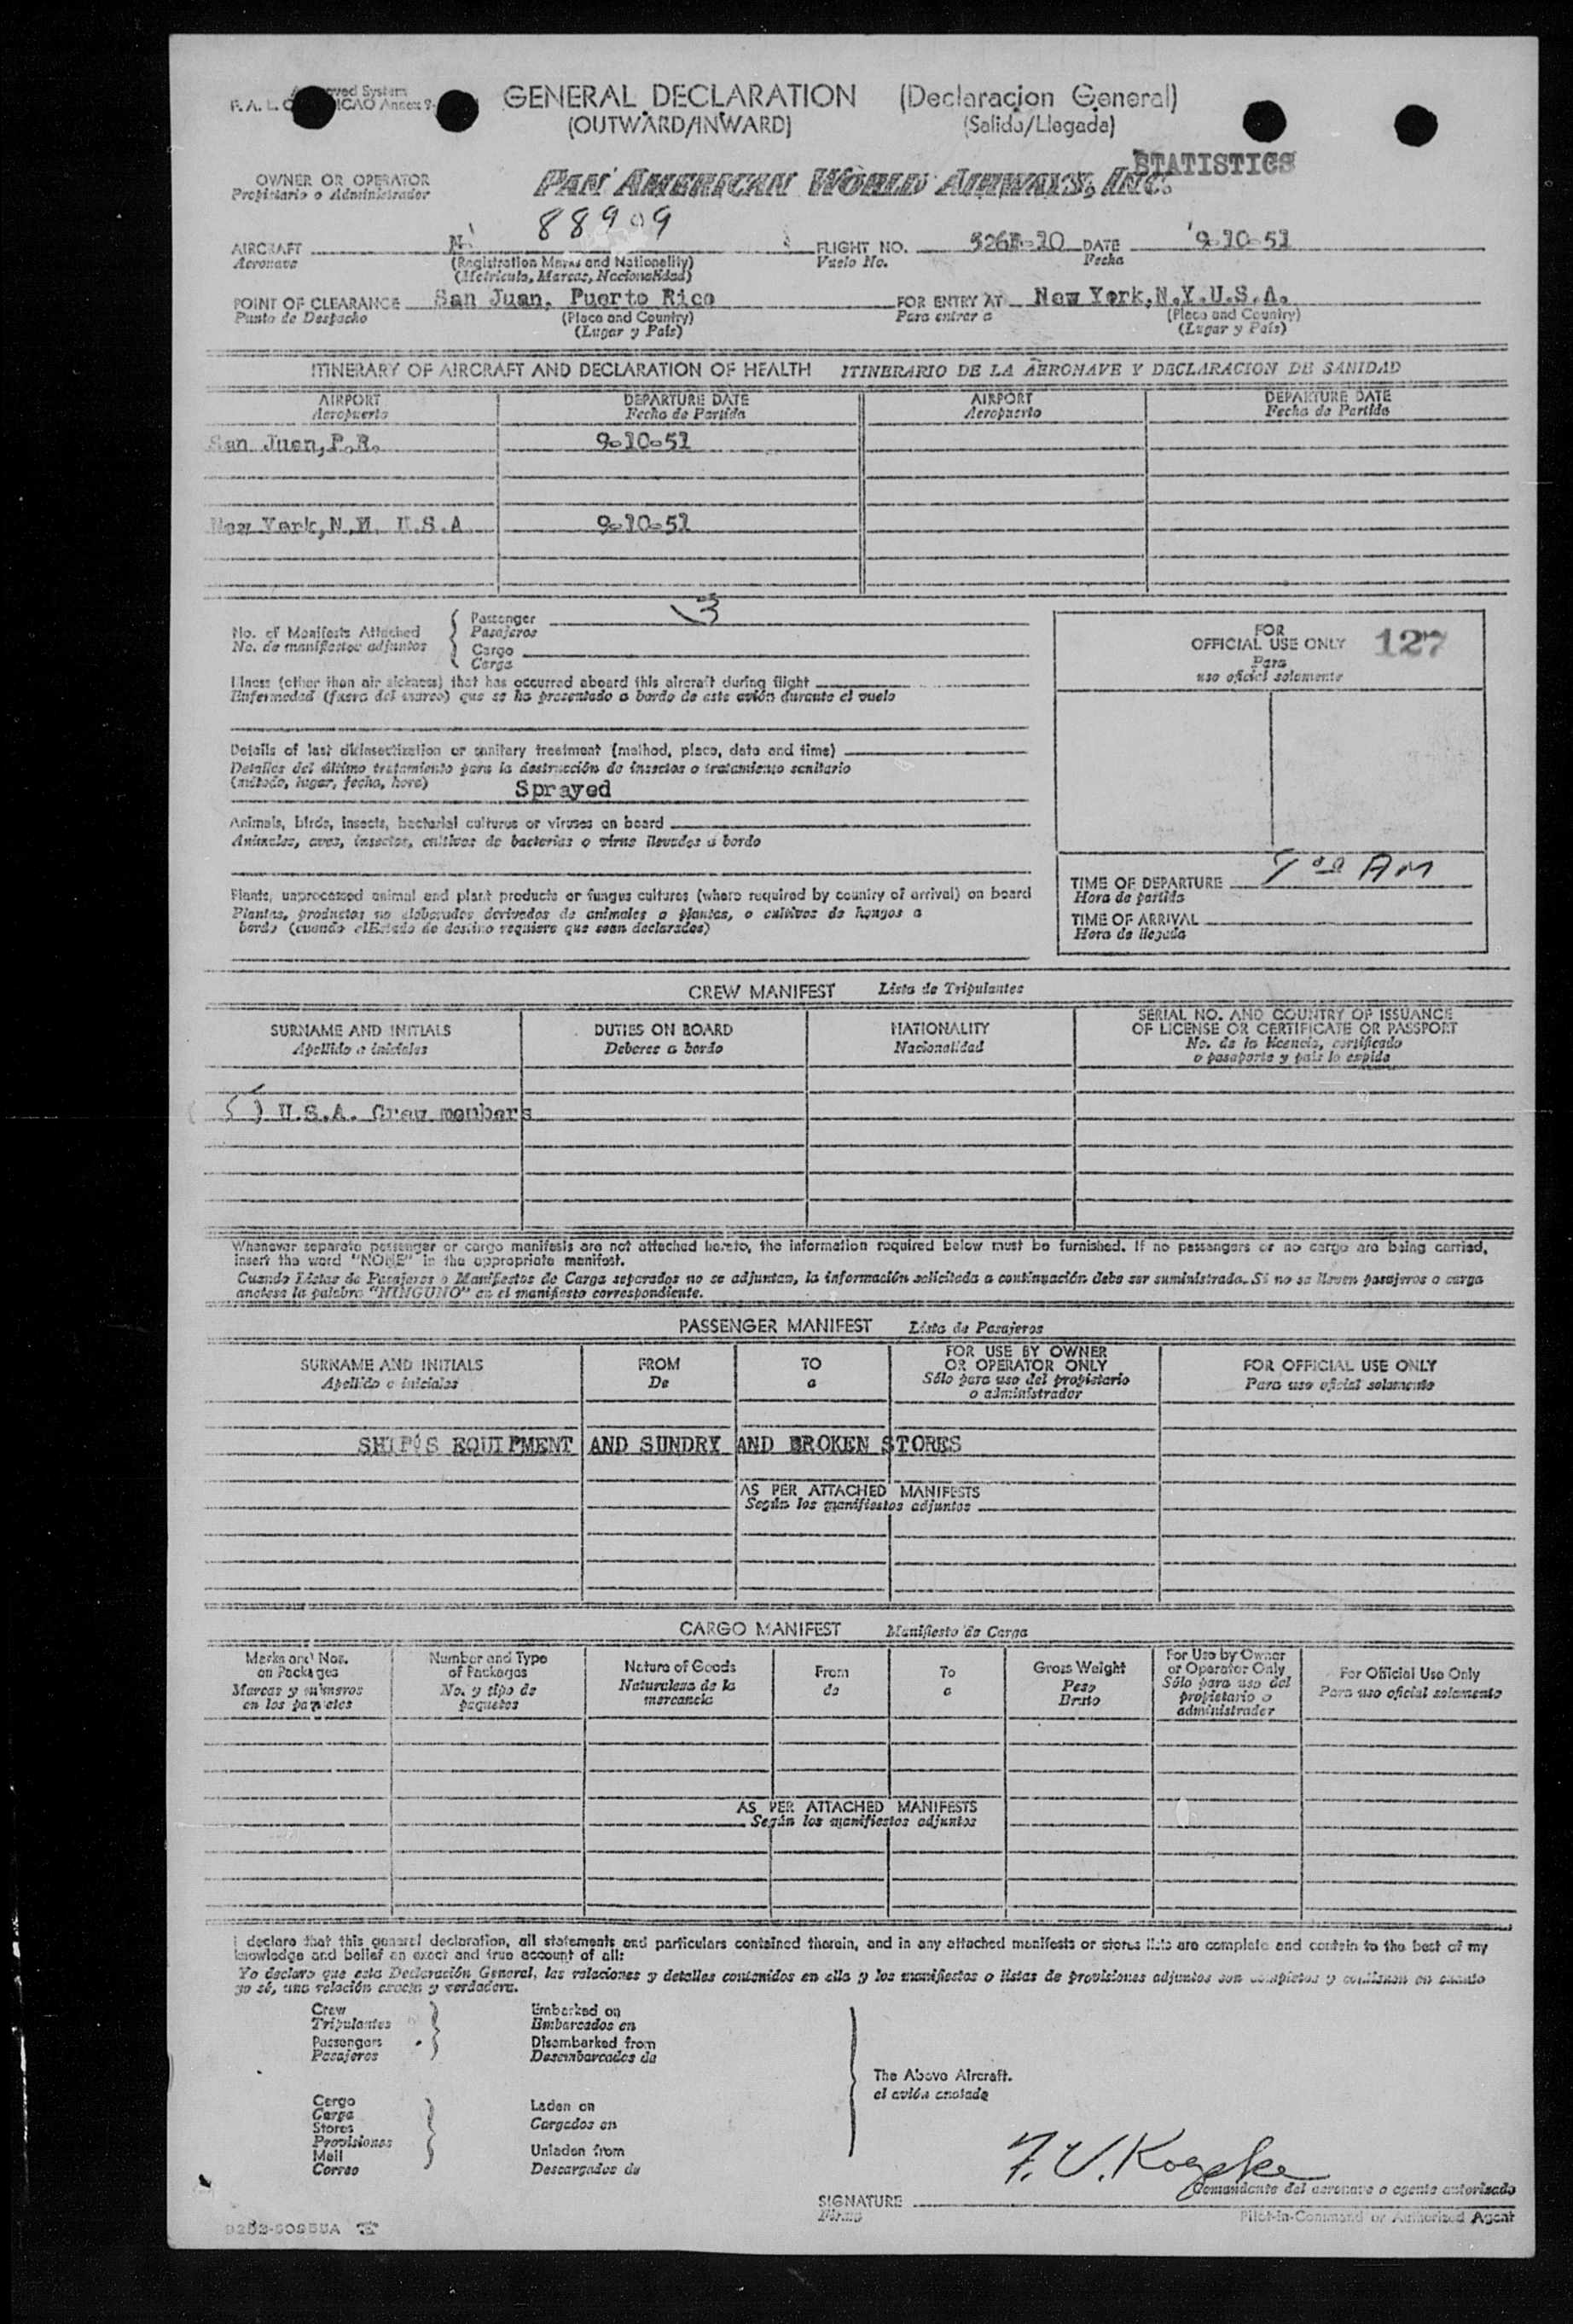 GENERAL DECLARATION (Declaracion General)
(OUTWARD/INWARD) (Salida/Llegada)
STATISTICS
OWNER OR OPERATOR PAN AMERICAN WORLD AIRWAYS, INC.
Propietario o Administrador
AIRCRAFT N 88909 FLIGHT NO. DATE 9-10-51
Aeronave (Registration Marks and Nationality) Vuelo No. Fecha
(Matricula, Marcas, Nacionalidad)
POINT OF CLEARANCE San Juan, Puerto Rico FOR ENTRY AT New York,N.Y.U.S.A.
Punto de Despacho (Place and Country) Para entrar a (Place and Country)
(Lugar y Pais) (Lugar y Pais)
ITINERARY OF AIRCRAFT AND DECLARATION OF HEALTH ITINERARIO DE LA AERONAVE Y DECLARACION DE SANIDAD
AIRPORT DEPARTURE DATE AIRPORT DEPARTURE DATE
Aeropuerto Fecha de Partida Aeropuerto Fecha de Partida
San Juan,P.R. 9-10-51
New York, U.S.A 9-10-51
No. of Manifests Attached Passenger 3
No. de manifiestos adjuntos Pasajeros
Cargo
Carga
FOR
OFFICIAL USE ONLY 127
Para
uso oficial solamente
Illness (other than air sickness) that has occurred aboard this aircraft during flight
Enfermedad (fuera del mareo) que se ha presentado a bordo de este avión durante el vuelo
Details of last disinsectization or sanitary treatment (method, place, date and time)
Detalles del último tratamiento para la destrucción de insectos o tratamiento sanitario
(método, lugar, fecha, hora) Sprayed
Animals, birds, insects, bacterial cultures or viruses on board
Animales, aves, insectos, cultivos de bacterias o virus llevados a bordo
Plants, unprocessed animal and plant products or fungus cultures (where required by country of arrival) on board
Plantas, productos no elaborados derivados de animales o plantas, o cultivos de hongos a
bordo (cuando elEstado de destino requiere que sean declarados)
TIME OF DEPARTURE AM
Hora de partida
TIME OF ARRIVAL
Hora de llegada
CREW MANIFEST Lista de Tripulantes
SURNAME AND INITIALS DUTIES ON BOARD NATIONALITY SERIAL NO. AND COUNTRY OF ISSUANCE
OF LICENSE OR CERTIFICATE OR PASSPORT
Apellido e iniciales Deberes a bordo Nacionalidad No. de la licencia, certificado
o pasaporte y pais lo expide
( 5 ) U.S.A. Crew members
Whenever separate passenger or cargo manifests are not attached hereto, the information required below must be furnished. If no passengers or no cargo are being carried,
insert the word "NONE" in the appropriate manifest.
Cuando Listas de Pasajeros o Manifiestos de Carga separados no se adjuntan, la información solicitada a continuación debe ser suministrada. Si no se llevan pasajeros o carga
anotese la palabra "NINGUNO" en el manifiesto correspondiente.
PASSENGER MANIFEST Lista de Pasajeros
SURNAME AND INITIALS FROM TO FOR USE BY OWNER
OR OPERATOR ONLY FOR OFFICIAL USE ONLY
Apellido e iniciales De a Sólo para uso del propietario
o administrador Para uso oficial solamente
SHIP'S EQUIPMENT AND SUNDRY AND BROKEN STORES
AS PER ATTACHED MANIFESTS
Según los manifiestos adjuntos
CARGO MANIFEST Manifiesto de Carga
Marks and Nos.
on Packages
Marcas y números
en los paquetes
Number and Type
of Packages
No. y tipo de
paquetes
Nature of Goods
Naturaleza de la
mercancia
From
de
To
a
Gross Weight
Peso
Bruto
For Use by Owner
or Operator Only
Sólo para uso del
propietario o
administrador
For Official Use Only
Para uso oficial solamente
AS PER ATTACHED MANIFESTS
Según los manifiestos adjuntos
I declare that this general declaration, all statements and particulars contained therein, and in any attached manifests or stores lists are complete and contain to the best of my
knowledge and belief an exact and true account of all:
Yo declaro que esta Declaración General, las relaciones y detalles contenidos en ella y los manifiestos o listas de provisiones adjuntos son completos y contienen en cuanto
yo sé, una relación exacta y verdadera.
Crew
Tripulantes
Passengers
Pasajeros
Embarked on
Embarcados en
Disembarked from
Desembarcados de
The Above Aircraft.
el avión anotado
Cargo
Carga
Stores
Provisiones
Mail
Correo
Laden on
Cargados en
Unladen from
Descargados de
F. V. Koepke
Comandante del aeronave o agente autorizado
SIGNATURE
Firma
Pilot-in-Command or Authorized Agent